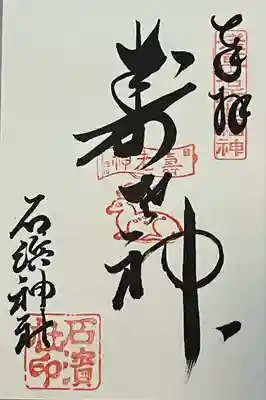 奉拝
壽老神
寿老神
石濱神社
石濱
社印